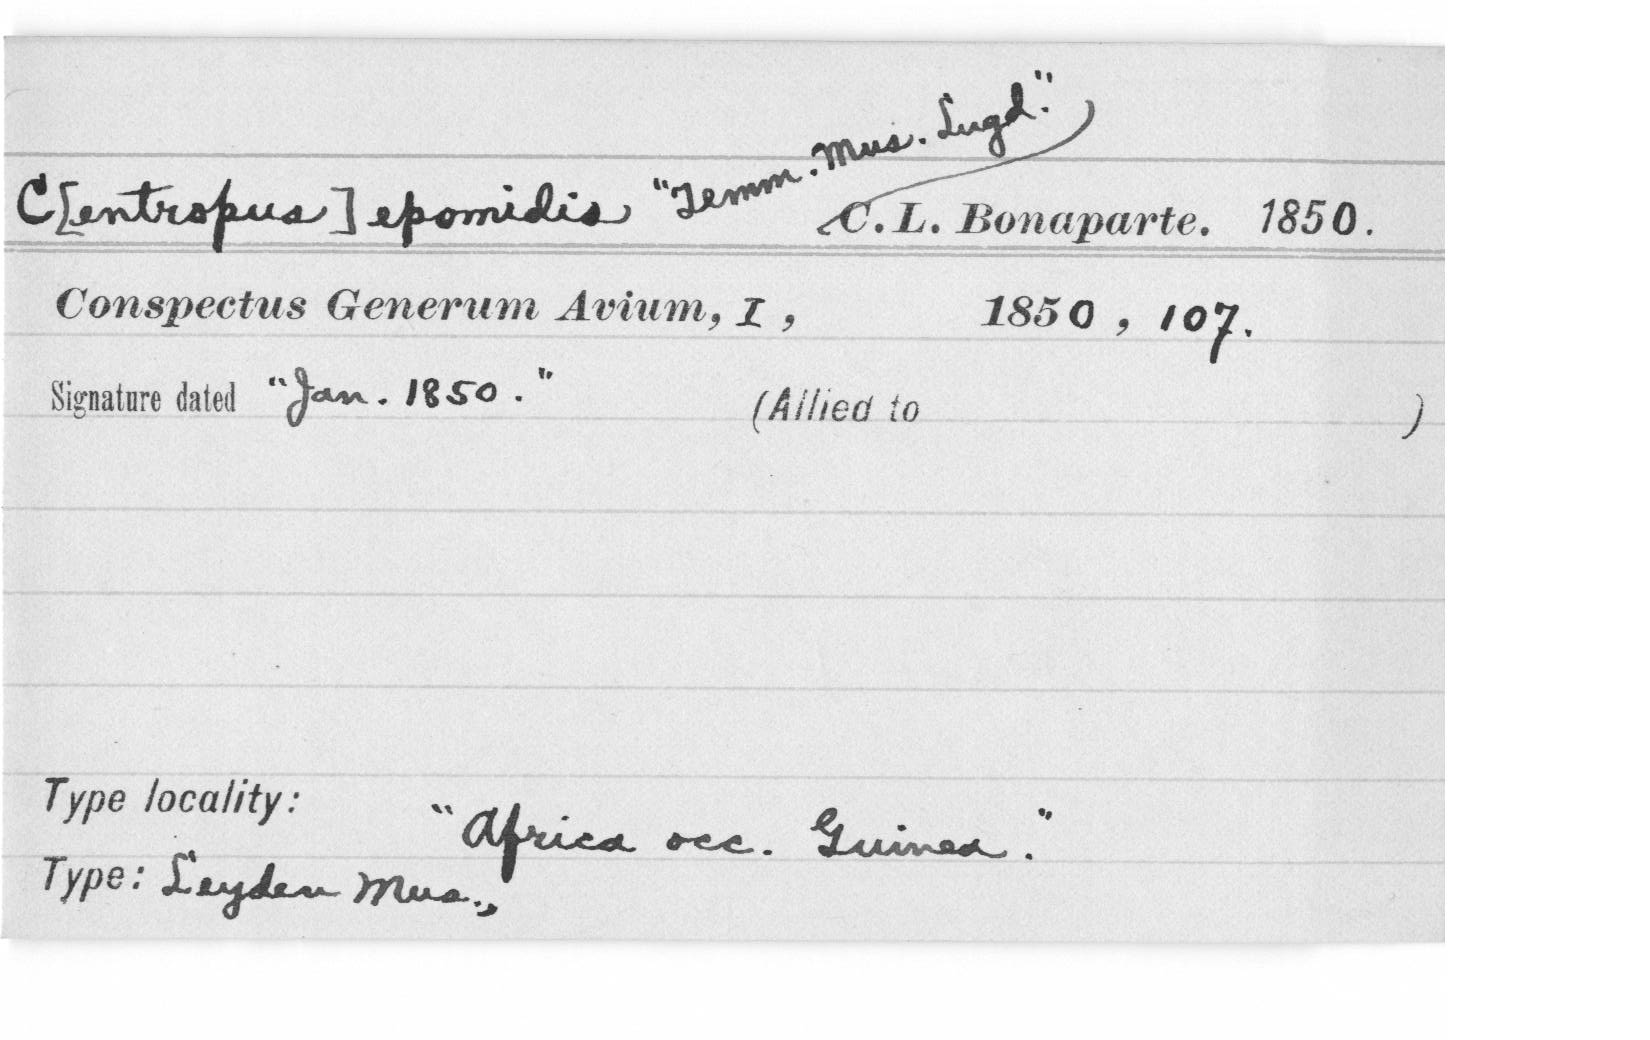 C[entropus] epomidis "Temm. Mus. Lugd." C. L. Bonaparte. 1850.
Conspectus Generum Avium, I, 1850, 107.
Signature dated "Jan. 1850." (Allied to )
Type locality: "Africa occ. Guinea."
Type: Leyden Mus.,